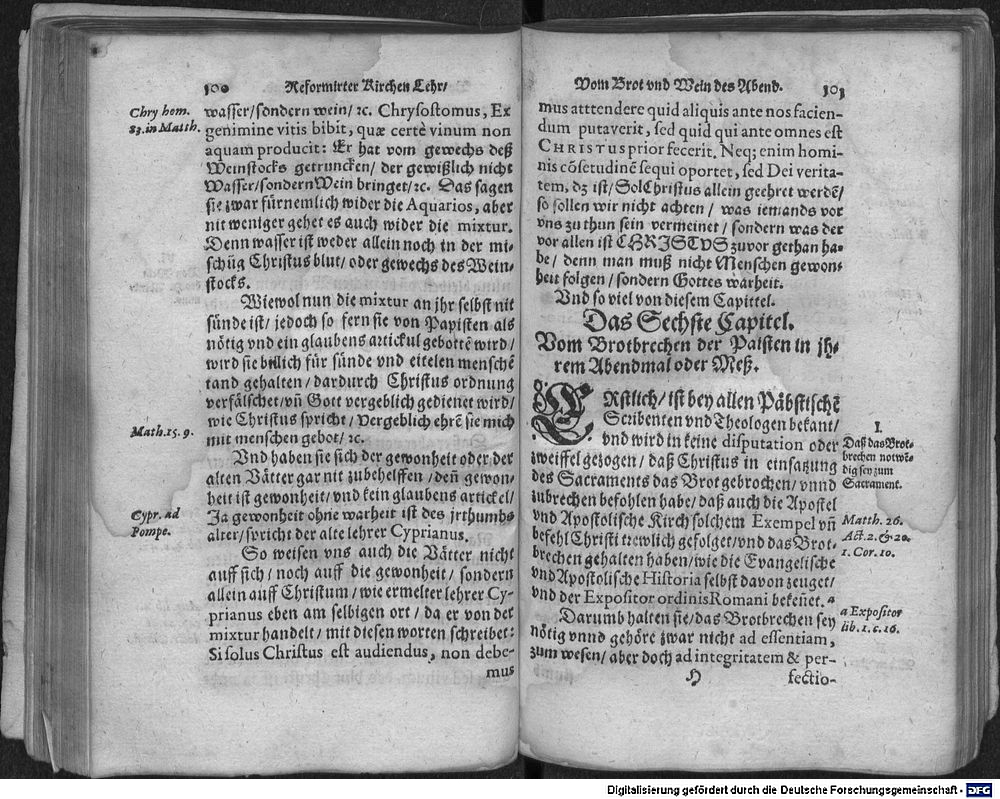 100 Reformirter Kirchen Lehr/
Chry hom.
83. in Matth.
wasser/sondern wein/ ꝛc. Chrysostomus, Ex
genimine vitis bibit, quæ certè vinum non
aquam producit: Er hat vom gewechs deß
Weinstocks getruncken/ der gewißlich nicht
Wasser/sondern Wein bringet/ꝛc. Das sagen
sie zwar fürnemlich wider die Aquarios, aber
nit weniger gehet es auch wider die mixtur.
Denn wasser ist weder allein noch in der mi-
schüg Christus blut/ oder gewechs des Wein-
stocks.
Wiewol nun die mixtur an jhr selbst nit
sünde ist/ jedoch so fern sie von Papisten als
nötig vnd ein glaubens artickul gebottē wird/
wird sie billich für sünde vnd eitelen menschē
tand gehalten/ dardurch Christus ordnung
verfälschet/vn̄ Gott vergeblich gedienet wird/
wie Christus spricht/ Vergeblich ehrē sie mich
Math. 15. 9.
mit menschen gebot/ ꝛc.
Vnd haben sie sich der gewonheit oder der
alten Vätter gar nit zubehelffen/ den̄ gewon-
heit ist gewonheit/vnd kein glaubens artickel/
Cypr. ad
Pompe.
Ja gewonheit ohne warheit ist des jrthumbs
alter/ spricht der alte lehrer Cyprianus.
So weisen vns auch die Vätter nicht
auff sich/ noch auff die gewonheit/ sondern
allein auff Christum/ wie ermelter lehrer Cy-
prianus eben am selbigen ort/ da er von der
mixtur handelt/ mit diesen worten schreibet:
Si solus Christus est audiendus, non debe-
mus
Vom Brot vnd Wein des Abend. 101
mus atttendere quid aliquis ante nos facien-
dum putaverit, sed quid qui ante omnes est
CHRISTUS prior fecerit. Neq; enim homi-
nis cōsetudinē sequi oportet, sed Dei verita-
tem, dz ist/ Sol Christus allein geehret werdē/
so sollen wir nicht achten/ was iemands vor
vns zu thun sein vermeinet/ sondern was der
vor allen ist CHRISTVS zuvor gethan ha-
be/ denn man muß nicht Menschen gewon-
heit folgen/ sondern Gottes warheit.
Vnd so viel von diesem Capittel.
Das Sechste Capitel.
Vom Brotbrechen der Paisten in jh-
rem Abendmal oder Meß.
ERstlich/ ist bey allen Päbstischē
Scribenten vnd Theologen bekant/
vnd wird in keine disputation oder
zweiffel gezogen/ daß Christus in einsatzung
des Sacraments das Brot gebrochen/ vnnd
zubrechen befohlen habe/ daß auch die Apostel
vnd Apostolische Kirch solchem Exempel vn̄
befehl Christi trewlich gefolget/vnd das Brot-
brechen gehalten haben/ wie die Evangelische
vnd Apostolische Historia selbst davon zeuget/
vnd der Expositor ordinis Romani beken̄et. a
I.
Daß das Brot-
brechen notwē-
dig sey zum
Sacrament.
Matth. 26.
Act. 2. & 20.
1. Cor. 10.
Darumb halten sie/ das Brotbrechen sey
nötig vnnd gehöre zwar nicht ad essentiam,
zum wesen/ aber doch ad integritatem & per-
a Expositor
lib. 1. c. 16.
H fectio-
Digitalisierung gefördert durch die Deutsche Forschungsgemeinschaft - DFG